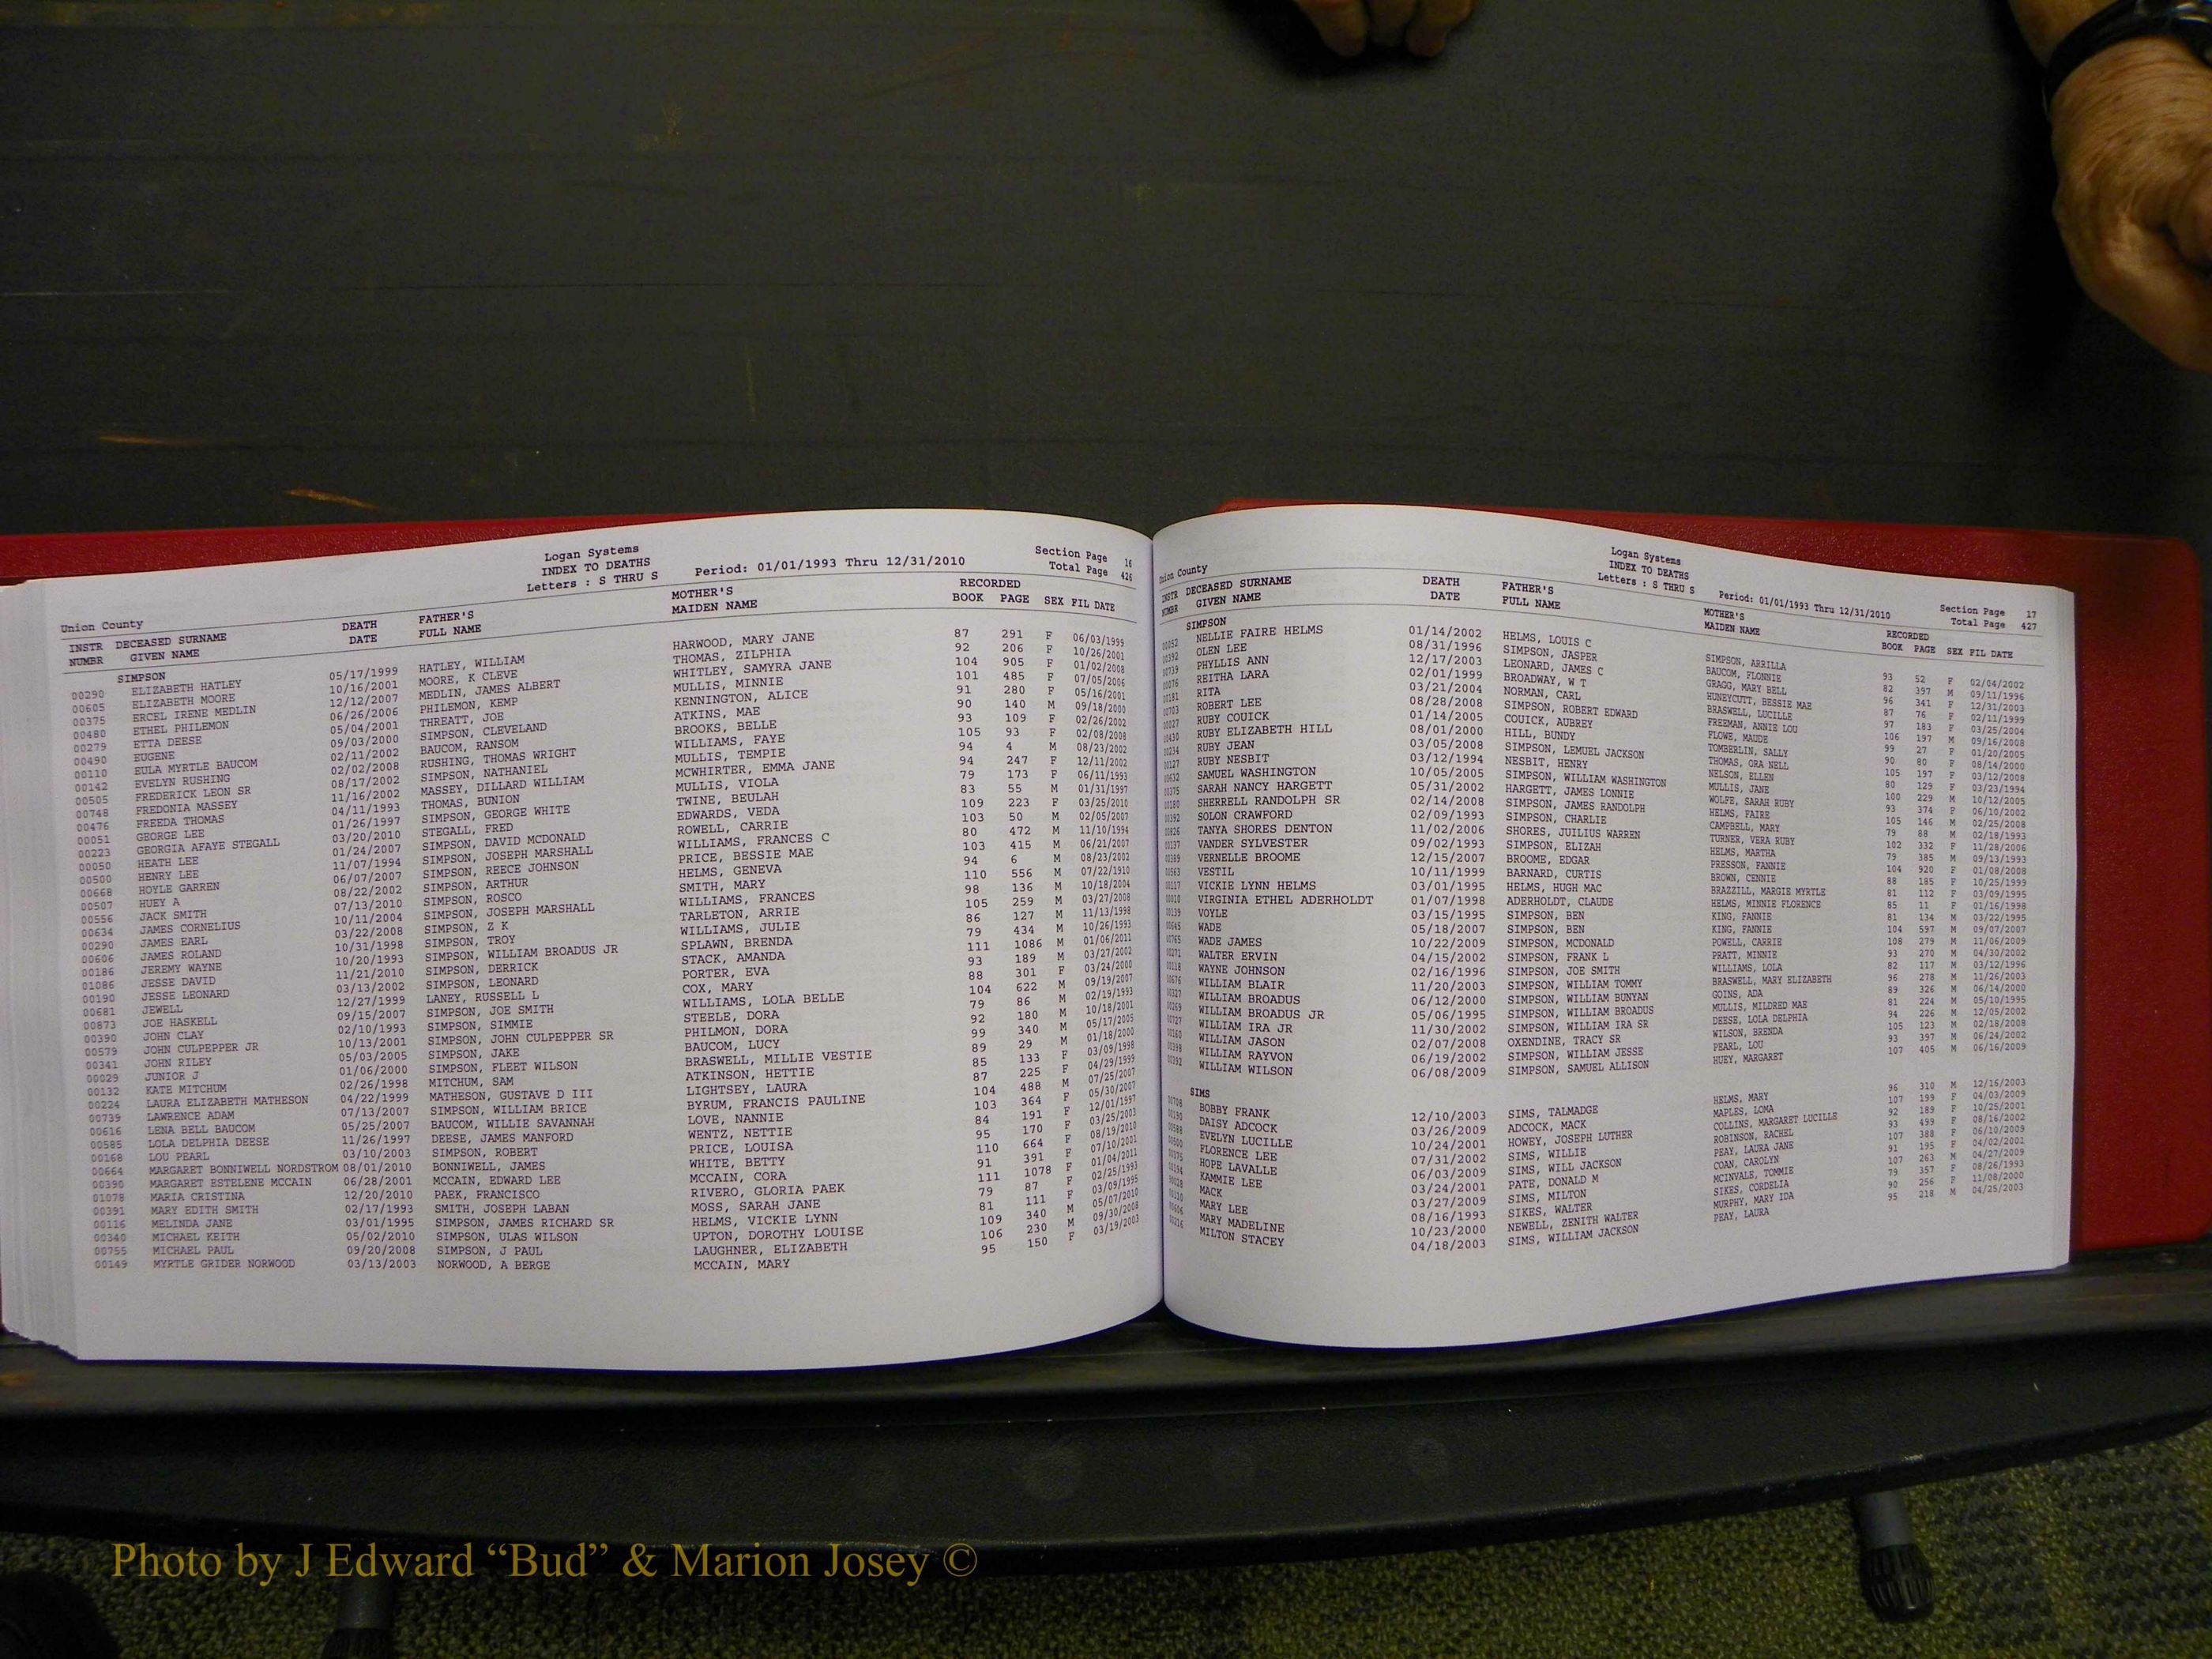 Union County
Logan Systems
INDEX TO DEATHS
Letters : S THRU S
Period: 01/01/1993 Thru 12/31/2010
Section Page 16
Total Page 426
INSTR DECEASED SURNAME DEATH FATHER'S MOTHER'S RECORDED
NUMBR GIVEN NAME DATE FULL NAME MAIDEN NAME BOOK PAGE SEX FIL DATE
SIMPSON
00290 ELIZABETH HATLEY 05/17/1999 HATLEY, WILLIAM HARWOOD, MARY JANE 87 291 F 06/03/1999
00605 ELIZABETH MOORE 10/16/2001 MOORE, K CLEVE THOMAS, ZILPHIA 92 206 F 10/26/2001
00375 ERCEL IRENE MEDLIN 12/12/2007 MEDLIN, JAMES ALBERT WHITLEY, SAMYRA JANE 104 905 F 01/02/2008
00480 ETHEL PHILEMON 06/26/2006 PHILEMON, KEMP MULLIS, MINNIE 101 485 F 07/05/2006
00279 ETTA DEESE 05/04/2001 THREATT, JOE KENNINGTON, ALICE 91 280 F 05/16/2001
00490 EUGENE 09/03/2000 SIMPSON, CLEVELAND ATKINS, MAE 90 140 M 09/18/2000
00110 EULA MYRTLE BAUCOM 02/11/2002 BAUCOM, RANSOM BROOKS, BELLE 93 109 F 02/26/2002
00142 EVELYN RUSHING 02/02/2008 RUSHING, THOMAS WRIGHT WILLIAMS, FAYE 105 93 F 02/08/2008
00505 FREDERICK LEON SR 08/17/2002 SIMPSON, NATHANIEL MULLIS, TEMPIE 94 4 M 08/23/2002
00748 FREDONIA MASSEY 11/16/2002 MASSEY, DILLARD WILLIAM MCWHIRTER, EMMA JANE 94 247 F 12/11/2002
00476 FREEDA THOMAS 04/11/1993 THOMAS, BUNION MULLIS, VIOLA 79 173 F 06/11/1993
00051 GEORGE LEE 01/26/1997 SIMPSON, GEORGE WHITE TWINE, BEULAH 83 55 M 01/31/1997
00223 GEORGIA AFAYE STEGALL 03/20/2010 STEGALL, FRED EDWARDS, VEDA 109 223 F 03/25/2010
00050 HEATH LEE 01/24/2007 SIMPSON, DAVID MCDONALD ROWELL, CARRIE 103 50 M 02/05/2007
00500 HENRY LEE 11/07/1994 SIMPSON, JOSEPH MARSHALL WILLIAMS, FRANCES C 80 472 M 11/10/1994
00668 HOYLE GARREN 06/07/2007 SIMPSON, REECE JOHNSON PRICE, BESSIE MAE 103 415 M 06/21/2007
00507 HUEY A 08/22/2002 SIMPSON, ARTHUR HELMS, GENEVA 94 6 M 08/23/2002
00556 JACK SMITH 07/13/2010 SIMPSON, ROSCO SMITH, MARY 110 556 M 07/22/1910
00634 JAMES CORNELIUS 10/11/2004 SIMPSON, JOSEPH MARSHALL WILLIAMS, FRANCES 98 136 M 10/18/2004
00290 JAMES EARL 03/22/2008 SIMPSON, Z K TARLETON, ARRIE 105 259 M 03/27/2008
00606 JAMES ROLAND 10/31/1998 SIMPSON, TROY WILLIAMS, JULIE 86 127 M 11/13/1998
00186 JEREMY WAYNE 10/20/1993 SIMPSON, WILLIAM BROADUS JR SPLAWN, BRENDA 79 434 M 10/26/1993
01086 JESSE DAVID 11/21/2010 SIMPSON, DERRICK STACK, AMANDA 111 1086 M 01/06/2011
00190 JESSE LEONARD 03/13/2002 SIMPSON, LEONARD PORTER, EVA 93 189 M 03/27/2002
00681 JEWELL 12/27/1999 LANEY, RUSSELL L COX, MARY 88 301 F 03/24/2000
00873 JOE HASKELL 09/15/2007 SIMPSON, JOE SMITH WILLIAMS, LOLA BELLE 104 622 M 09/19/2007
00390 JOHN CLAY 02/10/1993 SIMPSON, SIMMIE STEELE, DORA 79 86 M 02/19/1993
00579 JOHN CULPEPPER JR 10/13/2001 SIMPSON, JOHN CULPEPPER SR PHILMON, DORA 92 180 M 10/18/2001
00341 JOHN RILEY 05/03/2005 SIMPSON, JAKE BAUCOM, LUCY 99 340 M 05/17/2005
00029 JUNIOR J 01/06/2000 SIMPSON, FLEET WILSON BRASWELL, MILLIE VESTIE 89 29 M 01/18/2000
00132 KATE MITCHUM 02/26/1998 MITCHUM, SAM ATKINSON, HETTIE 85 133 F 03/09/1998
00224 LAURA ELIZABETH MATHESON 04/22/1999 MATHESON, GUSTAVE D III LIGHTSEY, LAURA 87 225 F 04/29/1999
00739 LAWRENCE ADAM 07/13/2007 SIMPSON, WILLIAM BRICE BYRUM, FRANCIS PAULINE 104 488 M 07/25/2007
00616 LENA BELL BAUCOM 05/25/2007 BAUCOM, WILLIE SAVANNAH LOVE, NANNIE 103 364 F 05/30/2007
00585 LOLA DELPHIA DEESE 11/26/1997 DEESE, JAMES MANFORD WENTZ, NETTIE 84 191 F 12/01/1997
00168 LOU PEARL 03/10/2003 SIMPSON, ROBERT PRICE, LOUISA 95 170 F 03/25/2003
00664 MARGARET BONNIWELL NORDSTROM 08/01/2010 BONNIWELL, JAMES WHITE, BETTY 110 664 F 08/19/2010
00390 MARGARET ESTELENE MCCAIN 06/28/2001 MCCAIN, EDWARD LEE MCCAIN, CORA 91 391 F 07/10/2001
01078 MARIA CRISTINA 12/20/2010 PAEK, FRANCISCO RIVERO, GLORIA PAEK 111 1078 F 01/04/2011
00391 MARY EDITH SMITH 02/17/1993 SMITH, JOSEPH LABAN MOSS, SARAH JANE 79 87 F 02/25/1993
00116 MELINDA JANE 03/01/1995 SIMPSON, JAMES RICHARD SR HELMS, VICKIE LYNN 81 111 F 03/09/1995
00340 MICHAEL KEITH 05/02/2010 SIMPSON, ULAS WILSON UPTON, DOROTHY LOUISE 109 340 M 05/07/2010
00755 MICHAEL PAUL 09/20/2008 SIMPSON, J PAUL LAUGHNER, ELIZABETH 106 230 M 09/30/2008
00149 MYRTLE GRIDER NORWOOD 03/13/2003 NORWOOD, A BERGE MCCAIN, MARY 95 150 F 03/19/2003
Union County
Logan Systems
INDEX TO DEATHS
Letters : S THRU S
Period: 01/01/1993 Thru 12/31/2010
Section Page 17
Total Page 427
INSTR DECEASED SURNAME DEATH FATHER'S MOTHER'S RECORDED
NUMBR GIVEN NAME DATE FULL NAME MAIDEN NAME BOOK PAGE SEX FIL DATE
SIMPSON
NELLIE FAIRE HELMS 01/14/2002 HELMS, LOUIS C SIMPSON, ARRILLA 93 52 F 02/04/2002
OLEN LEE 08/31/1996 SIMPSON, JASPER BAUCOM, FLONNIE 82 397 M 09/11/1996
PHYLLIS ANN 12/17/2003 LEONARD, JAMES C GRAGG, MARY BELL 96 341 F 12/31/2003
REITHA LARA 02/01/1999 BROADWAY, W T HUNEYCUTT, BESSIE MAE 87 76 F 02/11/1999
RITA 03/21/2004 NORMAN, CARL BRASWELL, LUCILLE 97 183 F 03/25/2004
ROBERT LEE 08/28/2008 SIMPSON, ROBERT EDWARD FREEMAN, ANNIE LOU 106 197 M 09/16/2008
RUBY COUICK 01/14/2005 COUICK, AUBREY FLOWE, MAUDE 99 27 F 01/20/2005
RUBY ELIZABETH HILL 08/01/2000 HILL, BUNDY TOMBERLIN, SALLY 90 80 F 08/14/2000
RUBY JEAN 03/05/2008 SIMPSON, LEMUEL JACKSON THOMAS, ORA NELL 105 197 F 03/12/2008
RUBY NESBIT 03/12/1994 NESBIT, HENRY NELSON, ELLEN 80 129 F 03/23/1994
SAMUEL WASHINGTON 10/05/2005 SIMPSON, WILLIAM WASHINGTON MULLIS, JANE 100 229 M 10/12/2005
SARAH NANCY HARGETT 05/31/2002 HARGETT, JAMES LONNIE WOLFE, SARAH RUBY 93 374 F 06/10/2002
SHERRELL RANDOLPH SR 02/14/2008 SIMPSON, JAMES RANDOLPH HELMS, FAIRE 105 146 M 02/25/2008
SOLON CRAWFORD 02/09/1993 SIMPSON, CHARLIE CAMPBELL, MARY 79 88 M 02/18/1993
TANYA SHORES DENTON 11/02/2006 SHORES, JUILIUS WARREN TURNER, VERA RUBY 102 332 F 11/28/2006
VANDER SYLVESTER 09/02/1993 SIMPSON, ELIZAH HELMS, MARTHA 79 385 M 09/13/1993
VERNELLE BROOME 12/15/2007 BROOME, EDGAR PRESSON, FANNIE 104 920 F 01/08/2008
VESTIL 10/11/1999 BARNARD, CURTIS BROWN, CENNIE 88 185 F 10/25/1999
VICKIE LYNN HELMS 03/01/1995 HELMS, HUGH MAC BRAZZILL, MARGIE MYRTLE 81 112 F 03/09/1995
VIRGINIA ETHEL ADERHOLDT 01/07/1998 ADERHOLDT, CLAUDE HELMS, MINNIE FLORENCE 85 11 F 01/16/1998
VOYLE 03/15/1995 SIMPSON, BEN KING, FANNIE 81 134 M 03/22/1995
WADE 05/18/2007 SIMPSON, BEN KING, FANNIE 104 597 M 09/07/2007
WADE JAMES 10/22/2009 SIMPSON, MCDONALD POWELL, CARRIE 108 279 M 11/06/2009
WALTER ERVIN 04/15/2002 SIMPSON, FRANK L PRATT, MINNIE 93 270 M 04/30/2002
WAYNE JOHNSON 02/16/1996 SIMPSON, JOE SMITH WILLIAMS, LOLA 82 117 M 03/12/1996
WILLIAM BLAIR 11/20/2003 SIMPSON, WILLIAM TOMMY BRASWELL, MARY ELIZABETH 96 278 M 11/26/2003
WILLIAM BROADUS 06/12/2000 SIMPSON, WILLIAM BUNYAN GOINS, ADA 89 326 M 06/14/2000
WILLIAM BROADUS JR 05/06/1995 SIMPSON, WILLIAM BROADUS MULLIS, MILDRED MAE 81 224 M 05/10/1995
WILLIAM IRA JR 11/30/2002 SIMPSON, WILLIAM IRA SR DEESE, LOLA DELPHIA 94 226 M 12/05/2002
WILLIAM JASON 02/07/2008 OXENDINE, TRACY SR WILSON, BRENDA 105 123 M 02/18/2008
WILLIAM RAYVON 06/19/2002 SIMPSON, WILLIAM JESSE PEARL, LOU 93 397 M 06/24/2002
WILLIAM WILSON 06/08/2009 SIMPSON, SAMUEL ALLISON HUEY, MARGARET 107 405 M 06/16/2009
SIMS
BOBBY FRANK 12/10/2003 SIMS, TALMADGE HELMS, MARY 96 310 M 12/16/2003
DAISY ADCOCK 03/26/2009 ADCOCK, MACK MAPLES, LOMA 107 199 F 04/03/2009
EVELYN LUCILLE 10/24/2001 HOWEY, JOSEPH LUTHER COLLINS, MARGARET LUCILLE 92 189 F 10/25/2001
FLORENCE LEE 07/31/2002 SIMS, WILLIE ROBINSON, RACHEL 93 499 F 08/16/2002
HOPE LAVALLE 06/03/2009 SIMS, WILL JACKSON PEAY, LAURA JANE 107 388 F 06/10/2009
KAMMIE LEE 03/24/2001 PATE, DONALD M COAN, CAROLYN 91 195 F 04/02/2001
MACK 03/27/2009 SIMS, MILTON MCINVALE, TOMMIE 107 263 M 04/27/2009
MARY LEE 08/16/1993 SIKES, WALTER SIKES, CORDELIA 79 357 F 08/26/1993
MARY MADELINE 10/23/2000 NEWELL, ZENITH WALTER MURPHY, MARY IDA 90 256 F 11/08/2000
MILTON STACEY 04/18/2003 SIMS, WILLIAM JACKSON PEAY, LAURA 95 218 M 04/25/2003
Photo by J Edward “Bud” & Marion Josey ©